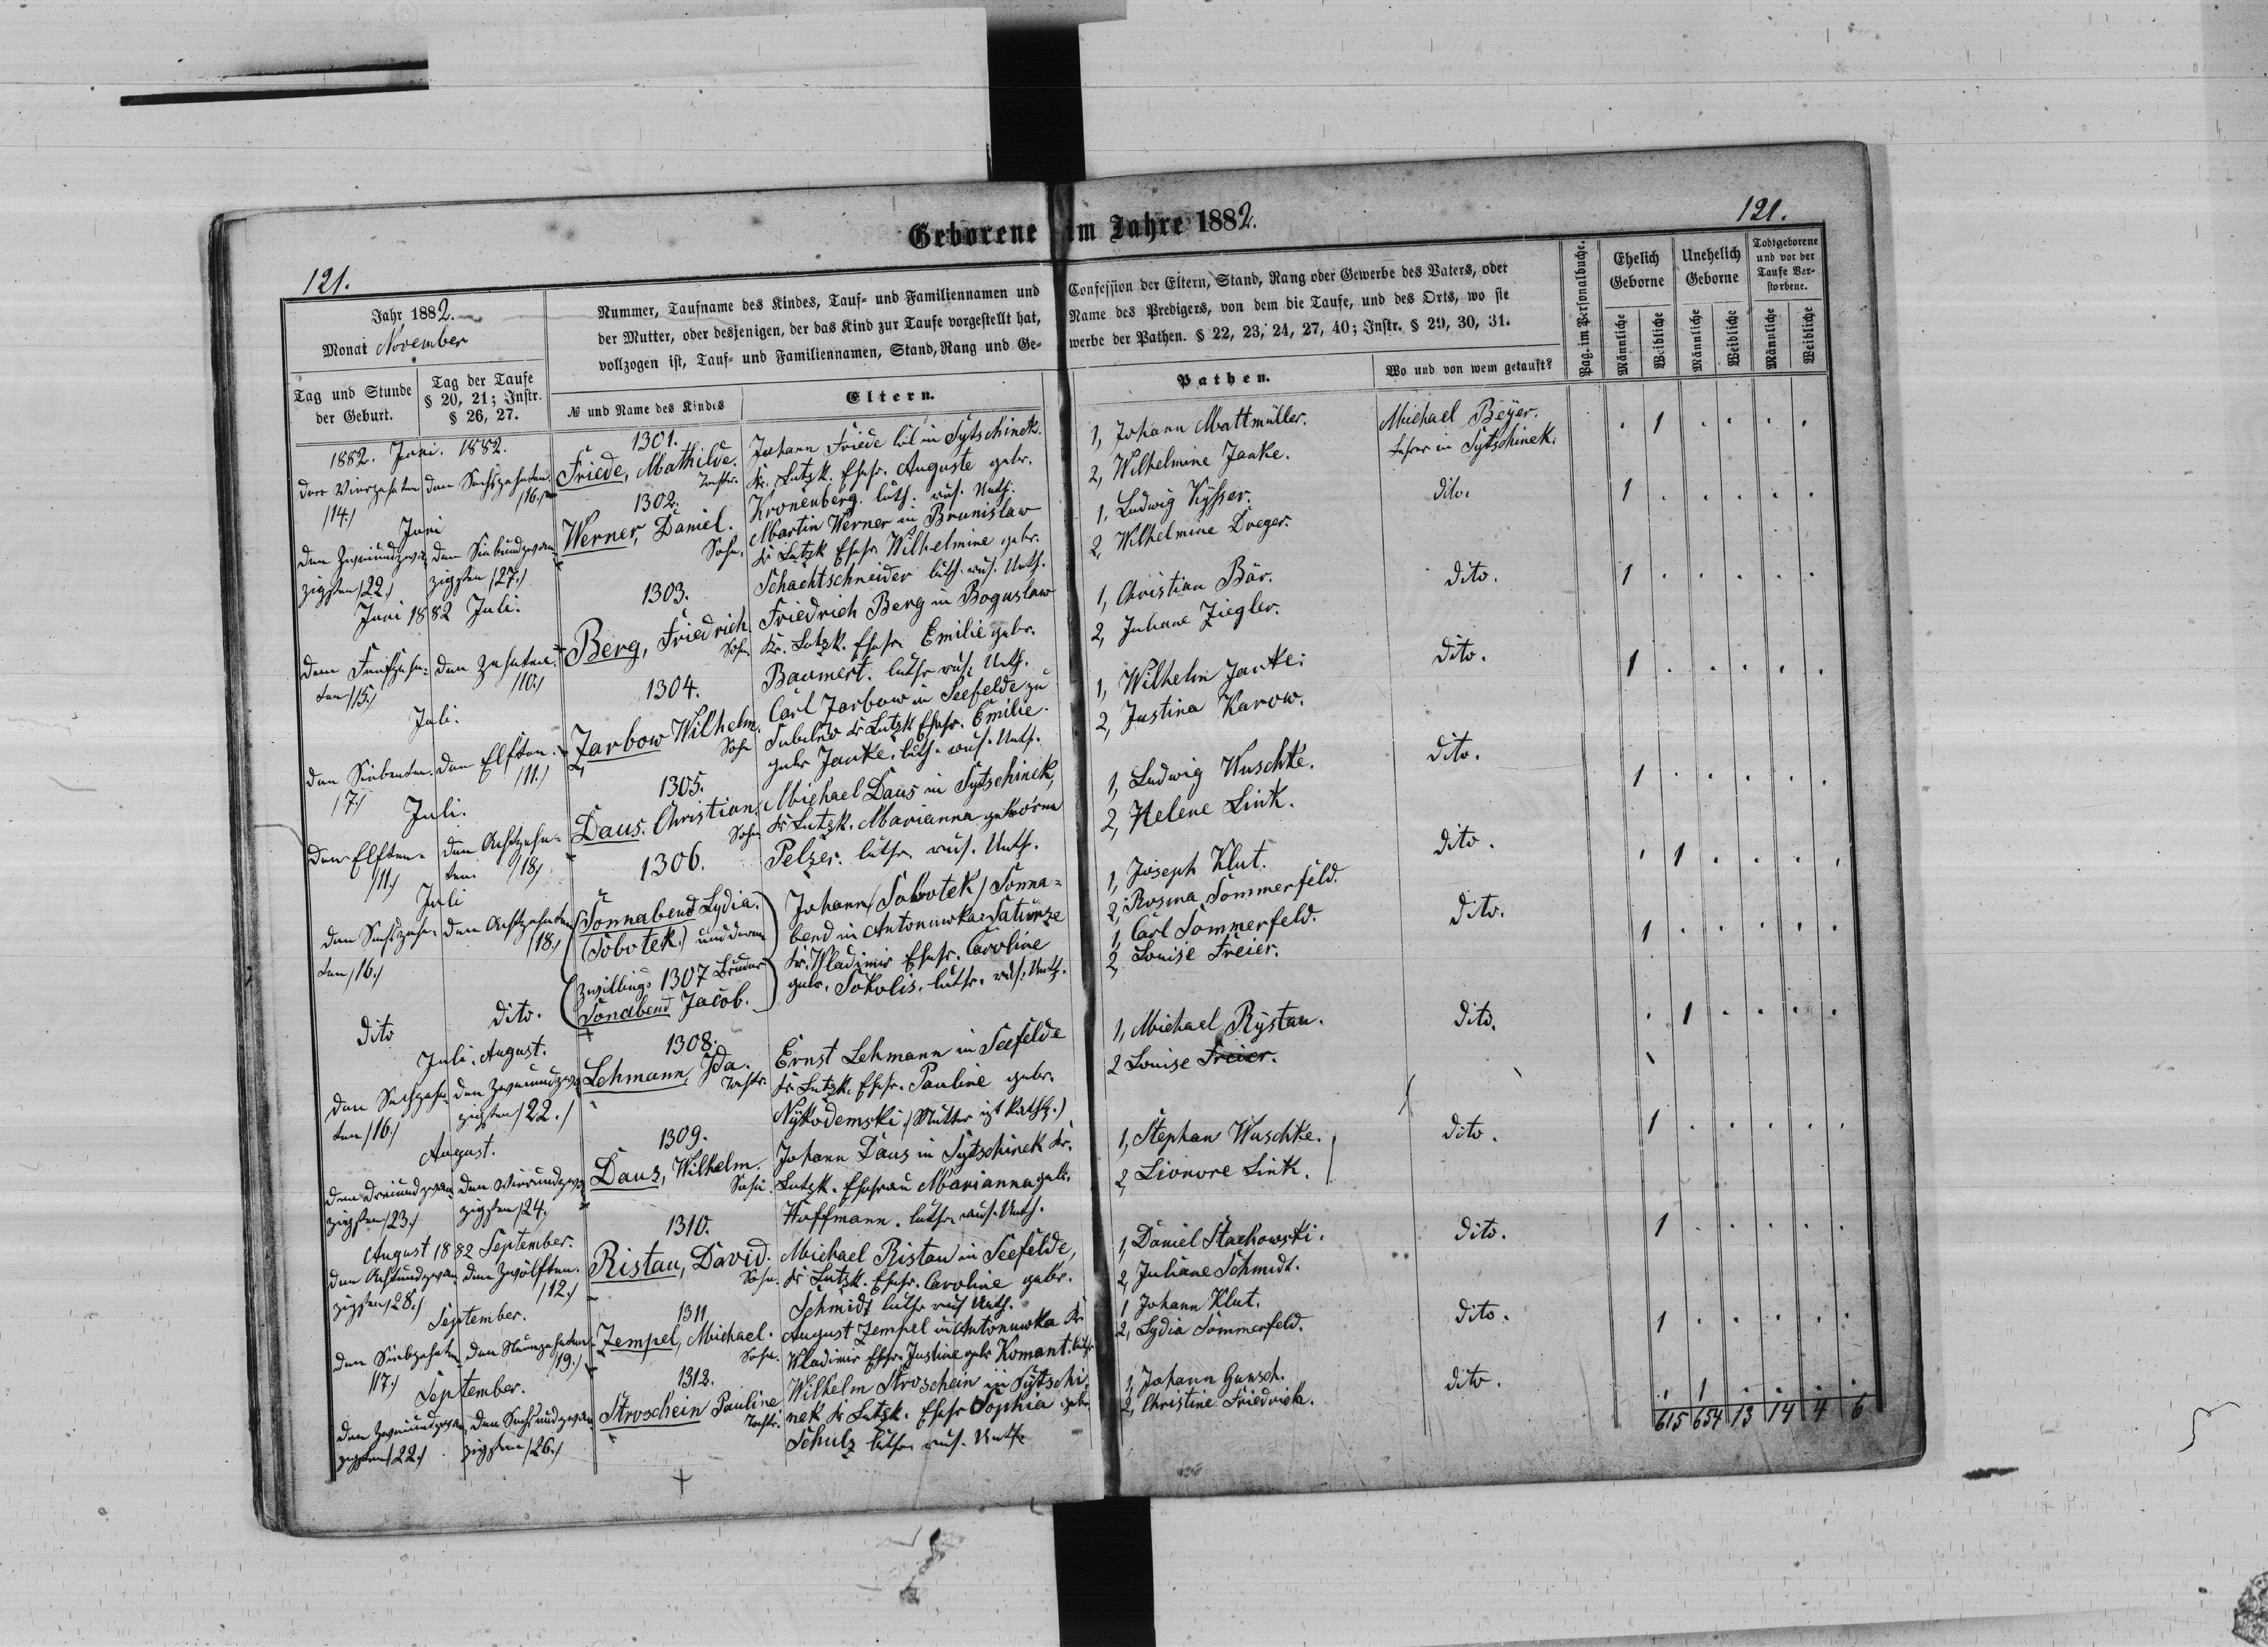 Geborene im Jahre 1882.
121.
121.
Jahr 1882.
Monat November
Tag und Stunde der Geburt.
Tag der Taufe § 20, 21; Instr. § 26, 27.
Nummer, Taufname des Kindes, Tauf- und Familiennamen und
der Mutter, oder desjenigen, der das Kind zur Taufe vorgestellt hat,
vollzogen ist, Tauf- und Familiennamen, Stand, Rang und Ge-
№ und Name des Kindes
Eltern.
Confession der Eltern, Stand, Rang oder Gewerbe des Vaters, oder
Name des Predigers, von dem die Taufe, und des Orts, wo sie
werbe der Pathen. § 22, 23, 24, 27, 40; Instr. § 29, 30, 31.
Pathen.
Wo und von wem getauft?
Pag. im Personalbuche.
Ehelich Geborne
Unehelich Geborne
Todtgeborene und vor der Taufe Verstorbene.
Männliche
Weibliche
Männliche
Weibliche
Männliche
Weibliche
1882. Juni. 1882.
den Vierzehnten /14./
den Sechszehnten /16./
1301.
Friede, Mathilde.
Tochter.
Johann Friede in Sytschinek.
Kr. Lutzk. Ehefr. Auguste gebr.
Kronenberg. luth. rus. Unth.
1, Johann Mattmüller.
2, Wilhelmine Janke.
Michael Beyer.
Lehrer in Sytschinek.
. 1 . . . .
Juni
den Zweiundzwanzigsten /22./
den Siebundzwanzigsten /27./
1302.
Werner, Daniel.
Sohn.
Martin Werner in Brunislaw
Kr Lutzk Ehefr. Wilhelmine gebr.
Schachtschneider luth. rus. Unth.
1, Ludwig Kysser.
2, Wilhelmine Dreger.
dito.
1 . . . . .
Juni 1882 Juli.
den Fünfzehnten /15./
den Zehnten /10./
1303.
Berg, Friedrich.
Sohn
Friedrich Berg in Boguslaw
Kr. Lutzk. Ehefr. Emilie gebr.
Baumert. luthr rus. Unth.
1, Christian Bär.
2, Juliane Ziegler.
dito.
1 . . . . .
Juli.
den Siebenten /7./
den Elften. /11./
1304.
Jarbow Wilhelm.
Sohn
Carl Jarbow in Seefelde zu
Kr Lutzk Ehefr. Emilie
gebr Janke. luth. rus. Unth.
1, Wilhelm Janke.
2, Justina Karow.
dito.
1 . . . . .
Juli.
den Elften. /11./
den Achtzehnten /18./
1305.
Daus. Christian.
Sohn
Michael Daus in Sytschinek,
Kr Lutzk. Marianna geborne
Pelzer. luthr. rus. Unth.
1, Ludwig Wuschke.
2, Helene Link.
dito.
1 . . . . .
Juli
den Sechszehnten /16./
den Achtzehnten /18./
1306.
Sonnabend Lydia.
(Sobotek.) und deren
Johann /Sobotek/ Sonna=
bend in Antonuwka
Kr. Wladimir Ehefr. Caroline
gebr. Sokolis. luthr. rus. Unth.
1, Joseph Klut.
2, Rosina Sommerfeld.
dito.
. 1 . . . .
dito
dito.
Zwillings 1307 Bruder
Sonabend Jacob.
1, Carl Sommerfeld.
2, Louise Freier.
dito.
1 . . . . .
Juli. August.
den Sechszehnten /16./
den Zweiundzwanzigsten /22./
1308.
Lehmann, Ida.
Tochtr.
Ernst Lehmann in Seefelde
Kr. Lutzk. Ehefr. Pauline gebr.
Nykodemski /Mutter ist kathl./
1, Michael Rystau.
2 Louise Freier.
dito.
. 1 . . . .
August.
den Dreiundzwanzigsten /23./
den Vierundzwanzigsten /24./
1309.
Daus, Wilhelm.
Sohn.
Johann Daus in Sytschinek Kr.
Lutzk. Ehefrau Marianna geb.
Hoffmann. luthr rus. Unth.
1, Stephan Wuschke.
2, Lionore Link.
dito.
1 . . . . .
August 1882 September.
den Achtundzwanzigsten /28./
den Zwölften. /12./
1310.
Ristau, David.
Sohn.
Michael Ristau in Seefelde,
Kr Lutzk. Ehefr. Caroline gebr.
Schmidt luthr rus Unth.
1, Daniel Stachowski.
2, Juliane Schmidt.
dito.
1 . . . . .
September.
den Siebzehnten /17./
den Neunzehnten /19./
1311
Zempel, Michael.
Sohn.
August Zempel in Antonuwka Kr
Wladimir Ehefr. Justine gebr Komant. luthr
1 Johann Klut.
2, Lydia Sommerfeld.
dito.
1 . . . . .
September.
den Zweiundzwanzigsten /22./
den Sechsundzwanzigsten /26./
1312.
Stroschein Pauline
Tochtr.
Wilhelm Stroschein in Sytschi-
nek Kr Lutzk. Ehefr Sophia gebr
Schulz luthr rus. Unth
1, Johann Gunsch.
2, Christine Friedrich.
dito.
. 1 . . . .
615 654 13 14 4 6